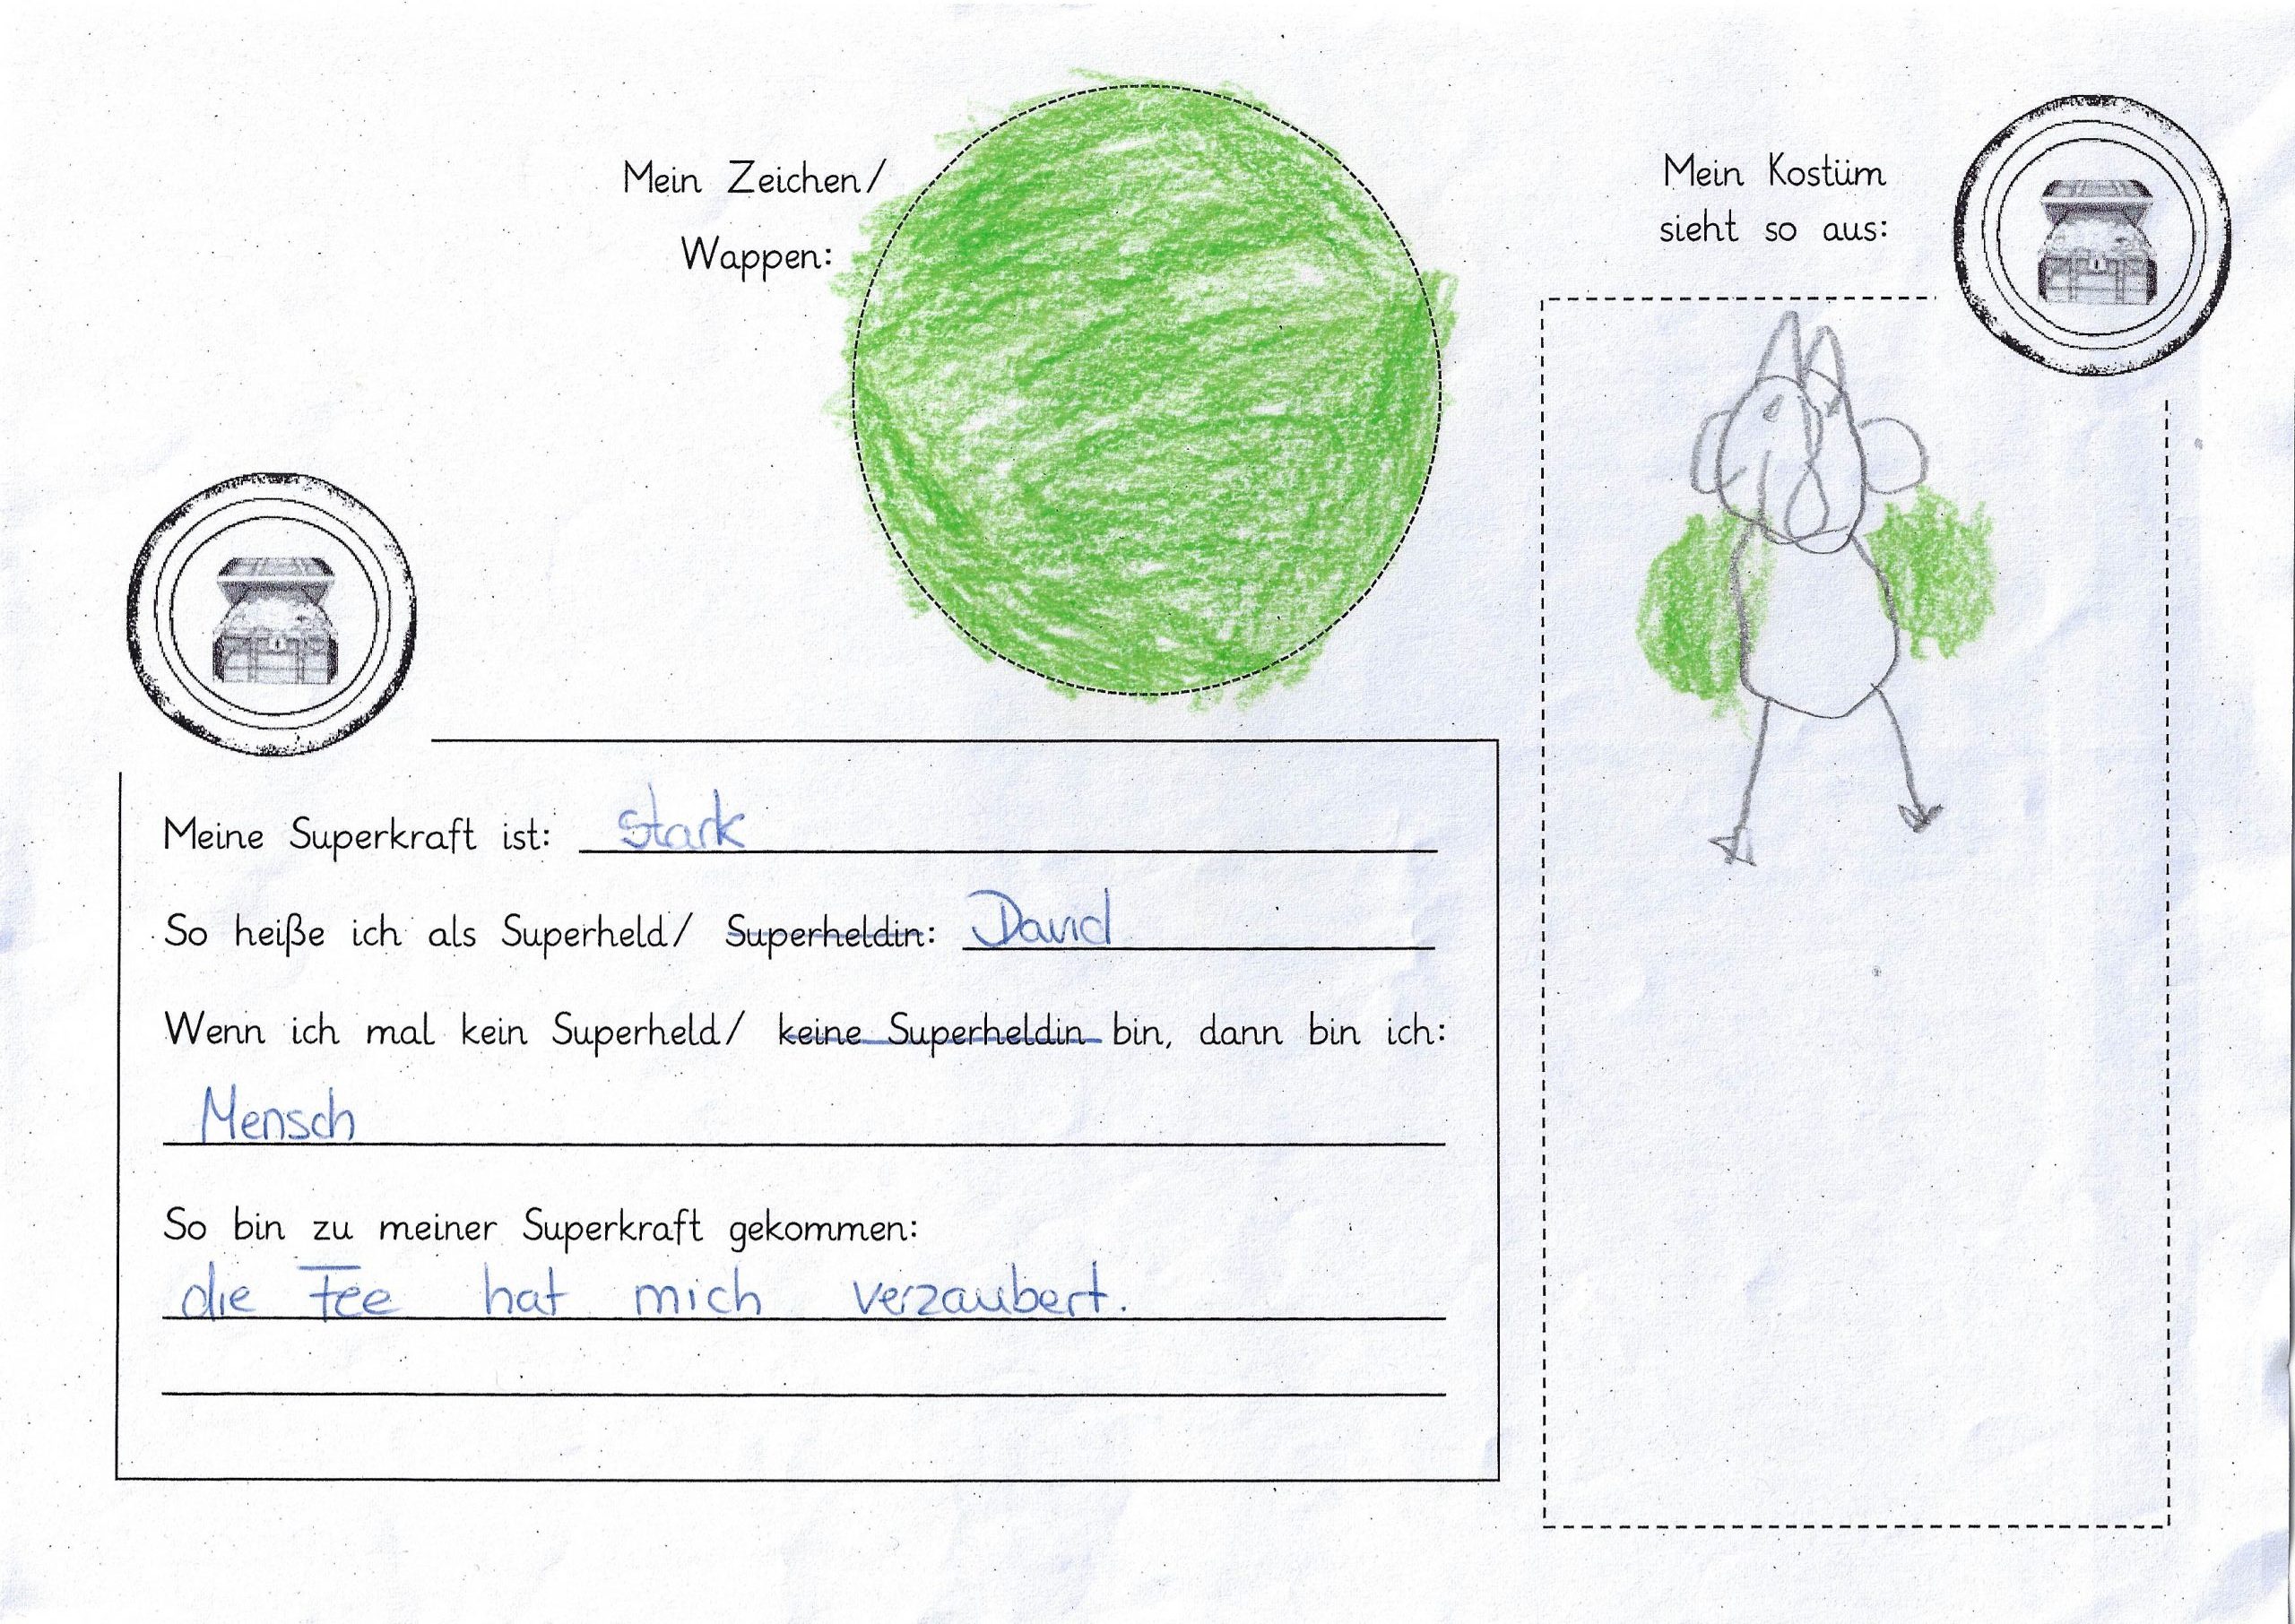 Mein Zeichen/
Wappen:
Mein Kostüm
sieht so aus:
Meine Superkraft ist: stark
So heiße ich als Superheld/ Superheldin: David
Wenn ich mal kein Superheld/ keine Superheldin bin, dann bin ich:
Mensch
So bin zu meiner Superkraft gekommen:
die Fee hat mich verzaubert.